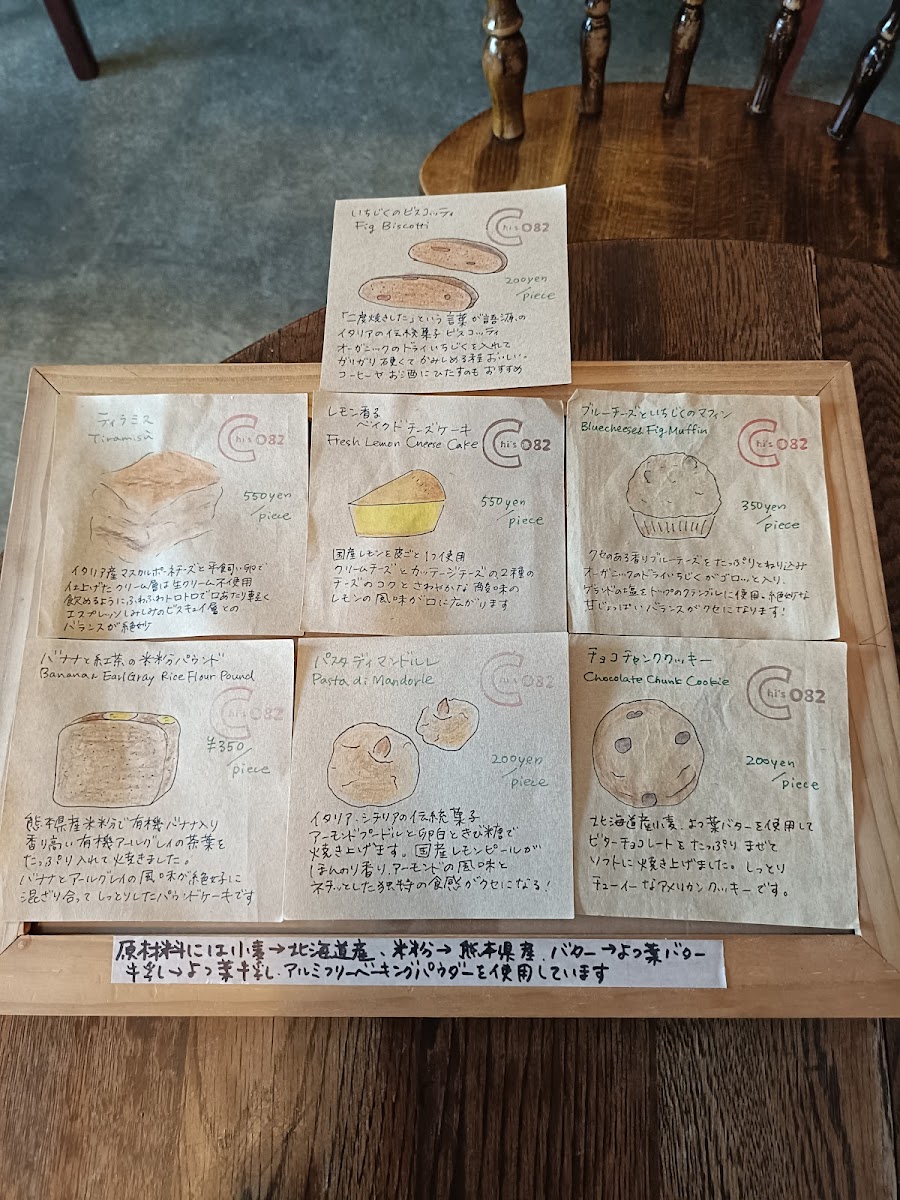 いちじくのビスコッティ
Fig Biscotti
Chi's 082
200yen
/piece
「二度焼きした」という言葉が語源の
イタリアの伝統菓子ビスコッティ
オーガニックのドライいちじくを入れて
ガリガリ硬くてかみしめる程おいしい。
コーヒーやお酒にひたすのもおすすめ
ティラミス
Tiramisu
Chi's 082
550yen
/piece
イタリア産マスカルポーネチーズと平飼い卵で
仕上げたクリーム層は生クリーム不使用
飲めるようにふわふわトロトロで口あたり軽く
エスプレッソしみしみのビスキュイ層との
バランスが絶妙
レモン香る
ベイクドチーズケーキ
Fresh Lemon Cheese Cake
Chi's 082
550yen
/piece
国産レモンを皮ごと1つ使用
クリームチーズとカッテージチーズの2種の
チーズのコクとさわやかな酸味の
レモンの風味が口に広がります
ブルーチーズといちじくのマフィン
Bluecheese&Fig Muffin
Chi's 082
350yen
/piece
クセのある香りブルーチーズをたっぷりとねり込み
オーガニックのドライいちじくがゴロッと入り、
ゲランドの塩をトップのクランブルに使用。絶妙な
甘じょっぱいバランスがクセになります!
バナナと紅茶の米粉パウンド
Banana & EarlGray Rice Flour Pound
Chi's 082
¥350
/piece
熊本県産米粉で有機バナナ入り
香り高い有機アールグレイの茶葉を
たっぷり入れて火焼きました。
バナナとアールグレイの風味が絶妙に
混ざり合ってしっとりしたパウンドケーキです
パスタディマンドルレ
Pasta di Mandorle
Chi's 082
200yen
/piece
イタリア・シチリアの伝統菓子
アーモンドプードルと卵白ときび糖で
焼き上げます。国産レモンピールが
ほんのり香り、アーモンドの風味と
ネチッとした独特の食感がクセになる!
チョコチャンククッキー
Chocolate Chunk Cookie
Chi's 082
200yen
/piece
北海道産小麦、よつ葉バターを使用して
ビターチョコレートをたっぷりまぜて
ソフトに焼き上げました。しっとり
チューイーなアメリカンクッキーです。
原材料には小麦→北海道産、米粉→熊本県産、バター→よつ葉バター
牛乳→よつ葉牛乳、アルミフリーベーキングパウダーを使用しています